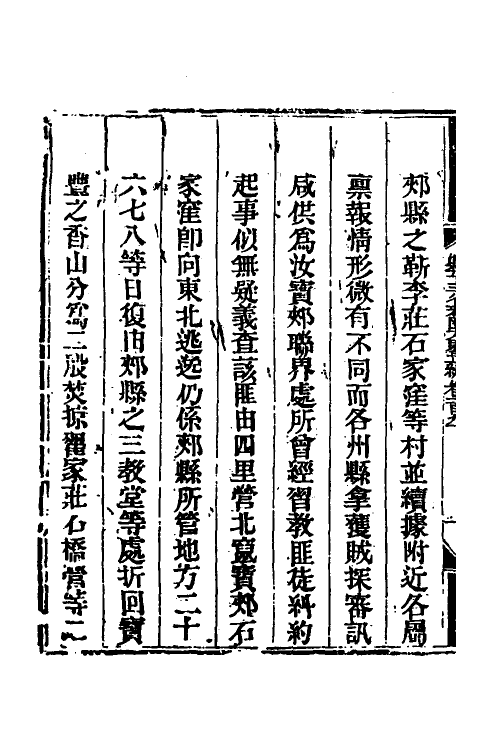 郟縣之靳李莊石家窪等村並續據附近各屬
稟報情形微有不同而各州縣拿獲賊探審訊
咸供為汝寶郟聯界處所曾經習教匪徒糾約
起事似無疑義查該匪由四里營北竄寶郟石
家窪卽向東北逃逸仍係郟縣所管地方二十
六七八等日復由郟縣之三教堂等處折回寶
豐之香山分為三股焚掠翟家莊石橋營等二